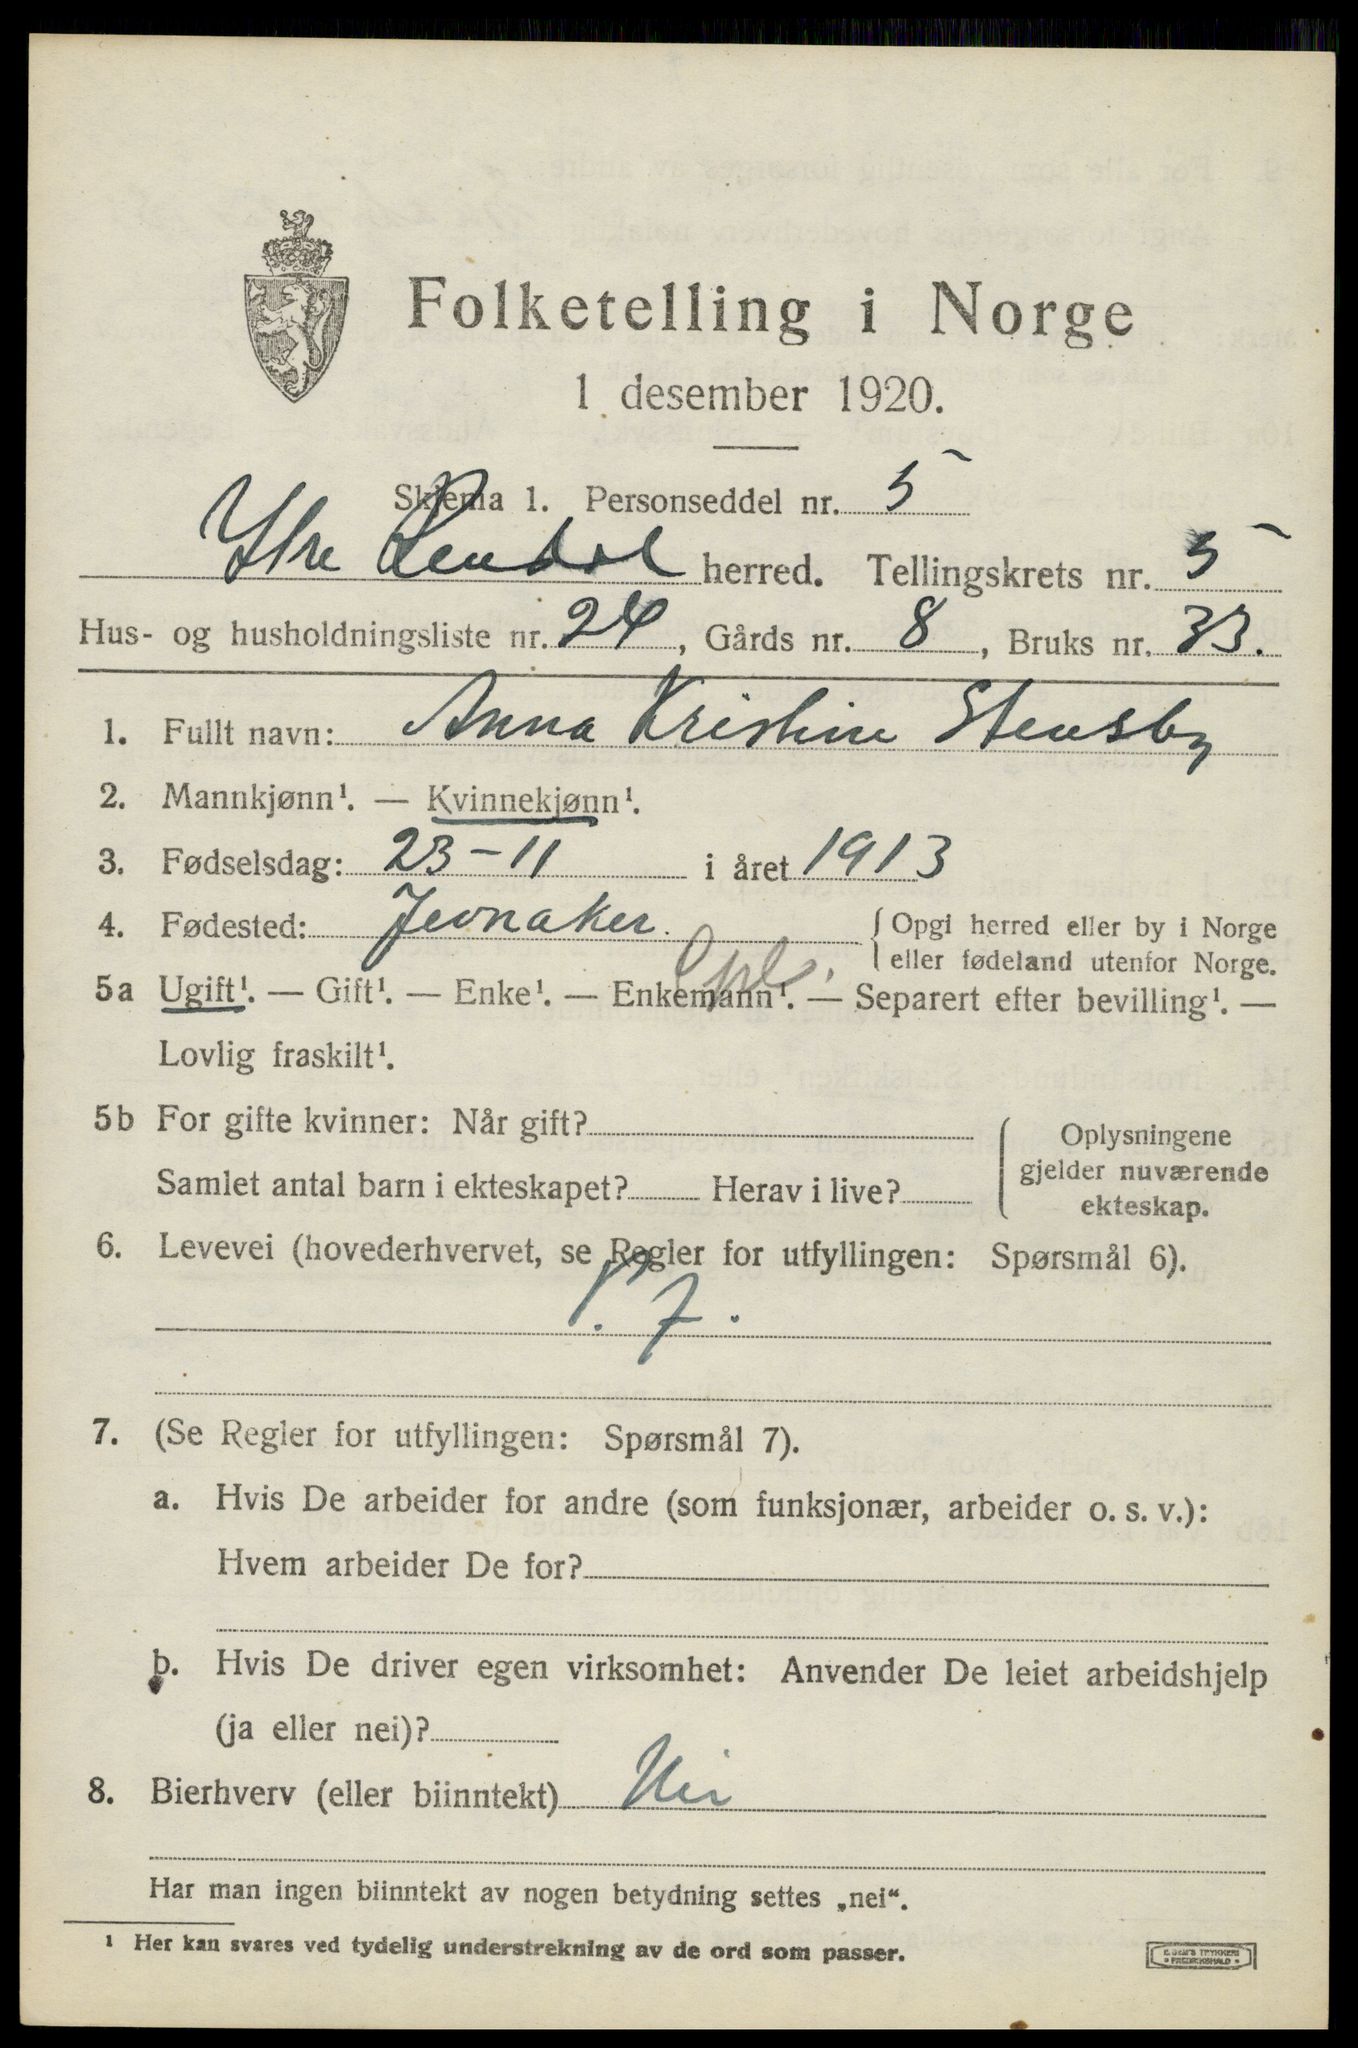 Folketelling i Norge
1 desember 1920.
Skjema 1. Personseddel nr. 5
Ytre Rendal herred. Tellingskrets nr. 5
Hus- og husholdningsliste nr. 24, Gårds nr. 8, Bruks nr. 33.
1. Fullt navn: Anna Kristine Stensby
2. Mannkjønn¹. — Kvinnekjønn¹.
3. Fødselsdag: 23-11 i året 1913
4. Fødested: Jevnaker. Opl. { Opgi herred eller by i Norge
eller fødeland utenfor Norge.
5a Ugift¹. — Gift¹. — Enke¹. — Enkemann¹. — Separert efter bevilling¹. —
Lovlig fraskilt¹.
5b For gifte kvinner: Når gift?
Samlet antal barn i ekteskapet? Herav i live?
{ Oplysningene
gjelder nuværende
ekteskap.
6. Levevei (hovederhvervet, se Regler for utfyllingen: Spørsmål 6).
7. (Se Regler for utfyllingen: Spørsmål 7).
a. Hvis De arbeider for andre (som funksjonær, arbeider o. s. v.):
Hvem arbeider De for?
b. Hvis De driver egen virksomhet: Anvender De leiet arbeidshjelp
(ja eller nei)?
8. Bierhverv (eller biinntekt) Nei
Har man ingen biinntekt av nogen betydning settes „nei“.
¹ Her kan svares ved tydelig understrekning av de ord som passer.